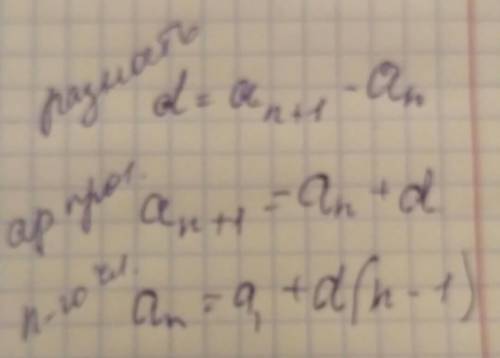 разность d = a_{n+1} - a_n
ар прог. a_{n+1} = a_n + d
n-го чл. a_n = a_1 + d(n - 1)